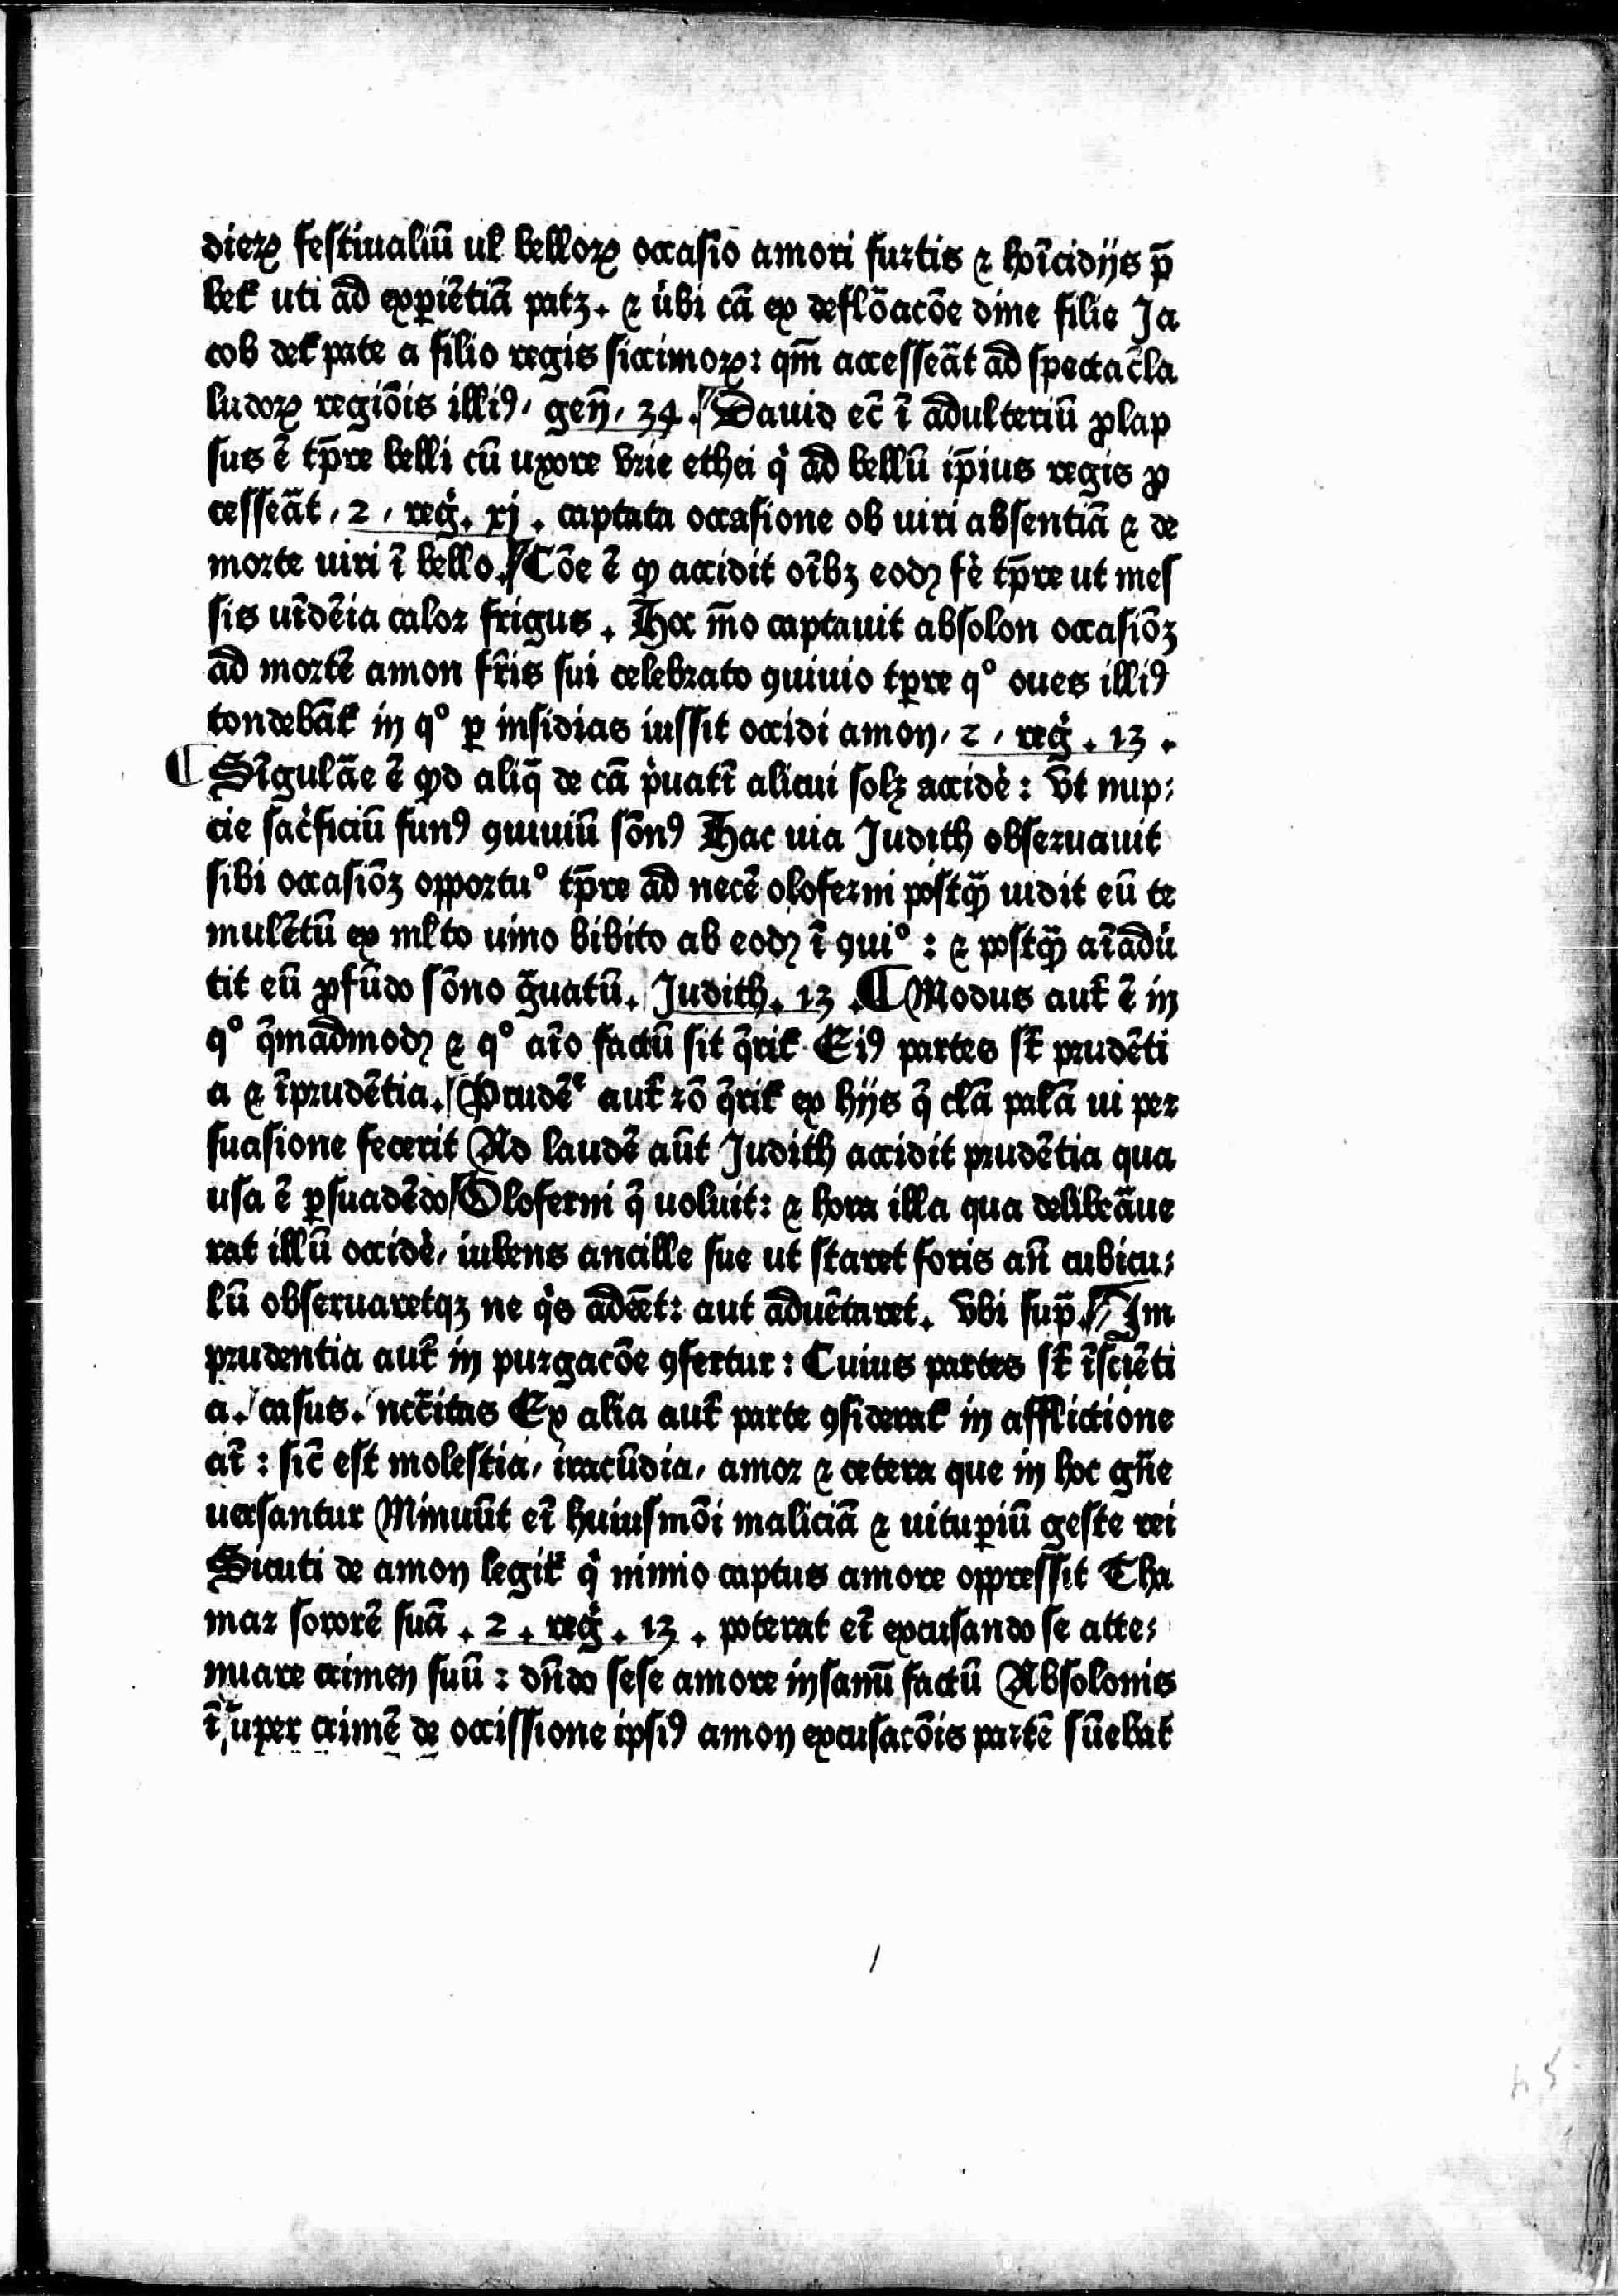 dieꝝ festiualiū uł belloꝝ occasio amori furtis ⁊ hoīcidijs p̄
bet᷑ uti ad exꝑiētiā patꝫ. ⁊ ůbi cā ex deflōacōe dine filie Ja
cob det᷑pate a filio regis siccimoꝝ: qm̄ accesseāt ad spectac̄la
ludoꝝ regiōis illiꝰ, gen̄, 34. Dauid ec̄ ī adulteriū ꝓlap
sus ē tp̄re belli cū uxore vrie ethei q̇ ad bellū ip̄ius regis ꝓ
cesseāt, 2, reg̊. xj. captata occasione ob uiri absentiā ⁊ de
morte uiri ī bello. Cōe ē ꝙ accidit oībꝫ eodꝫ fè tp̄re ut mes
sis uīdēia calor frigus. Hoc m̄o captauit absolon occasiōꝫ
ad mortē amon fr̄is sui celebrato ꝯuiuio tꝑre qº oues illiꝰ
tondebāt᷑ in qº ꝑ insidias iussit occidi amon, 2, reg̊. 13.
¶ Sīgulāe ē ꝙd aliq̄ de cā p̊uatī alicui solꝫ accidè: vt nup⸗
cie sac̊ficiū funꝰ ꝯuiuiū sōnꝰ Hac uia Judith obseruauit
sibi occasiōꝫ opportuº tp̄re ad necē oloferni postꝙ̄ uidit eū te
mulētū ex młto uino bibito ab eodꝫ ī ꝯuiº: ⁊ postꝙ̄ aīadů
tit eū ꝓfūdo sōno g̊uatū. Judith. 13. ¶ Modus aut᷑ ē in
qº q̄madmodꝫ ⁊ qº aīo factū sit q̄rit᷑ Eiꝰ partes st̄ prudēti
a ⁊ īprudētia. Prudēᵉ aut᷑ rō q̄rit᷑ ex hijs q̄ clā palā ui per
suasione fecerit Ad laudē aūt Judith accidit prudētia qua
usa ē ꝑsuadēdo Oloferni q̄ uoluit: ⁊ hora illa qua delibeāue
rat illū occidè, iubens ancille sue ut staret foris an̄ cubicu⸗
lū obseruaretqꝫ ne q̊s adeēt: aut aduētaret. vbi sup̄. Im
prudentia aut᷑ in purgacōe ꝯfertur: Cuius partes st̄ īsciēti
a. casus. nc̄c̄itas Ex alia aut᷑ parte ꝯsiderat᷑ in afflictione
aī: sic̄ est molestia, iracūdia, amor ⁊ cetera que in hoc gn̄e
uersantur Minuūt eī huiusmōi maliciā ⁊ uituꝑiū geste rei
Sicuti de amon legit᷑ q̇ nimio captus amore oppressit Tha
mar sororē suā. 2. reg̊. 13. poterat eī excusando se atte⸗
nuare crimen suū: dn̄do sese amore insanū factū Absolonis
ī super crimē de occissione ipsiꝰ amon excusacōis partē sūebat᷑